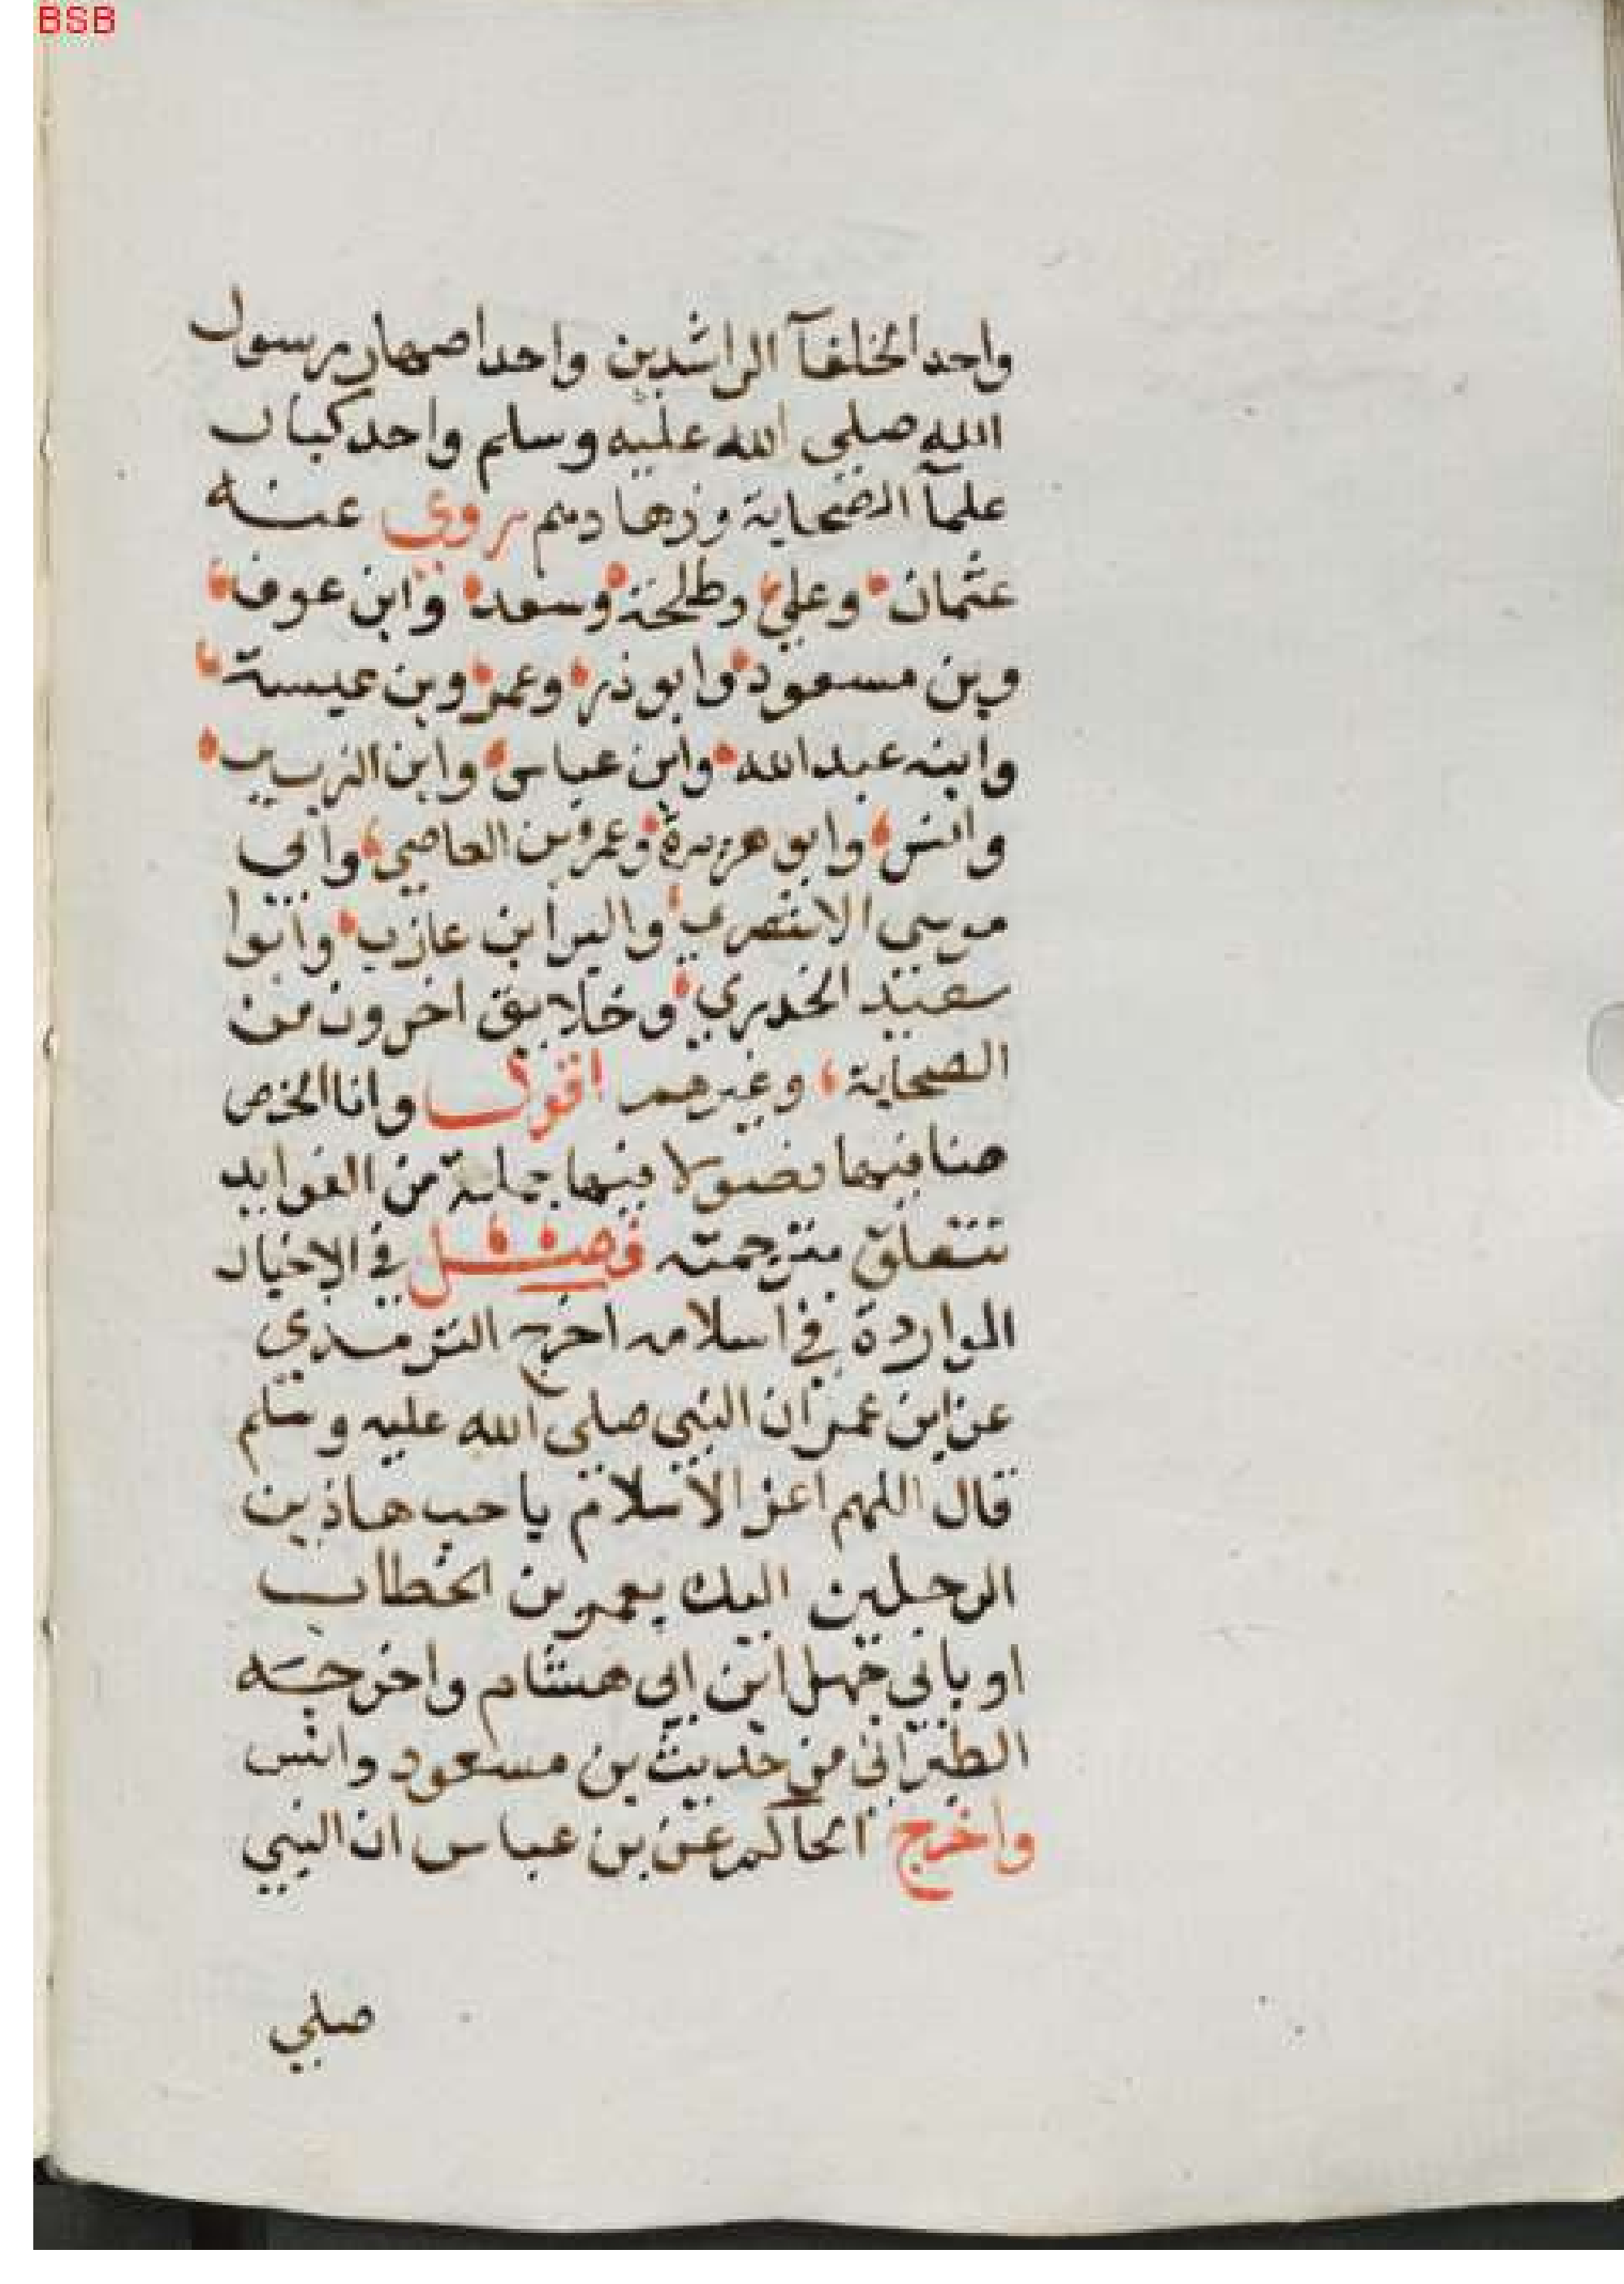 BSB
واحد الخلفآ الراشدين واحد اصهار رسول
الله صلي الله عليه وسلم واحد كبار
علمآ الصحابة وزهادهم روي عنه
عثمان وعلي وطلحة وسعد وابن عوف
وبن مسعود وابو ذر وعمرو بن عبسة
وابنه عبد الله وابن عباس وابن الزبير
وانس وابو هريرة وعمرو بن العاصي وابي
موسي الاشعري والبرا بن عازب وابوا
سعيد الخدري وخلايق اخرون من
الصحابة وغيرهم اقول وانا الخص
هنا فيها فصولا فيها جملة من الفوايد
تتعلق بترجمته فصل في الاخبار
الواردة في اسلامه اخرج الترمذي
عن ابن عمر ان النبي صلي الله عليه وسلم
قال اللهم اعز الاسلام باحب هاذين
الرجلين اليك بعمر بن الخطاب
او بابي جهل ابن ابي هشام واخرجه
الطبراني من حديث بن مسعود وانس
واخرج الحاكم عن بن عباس ان النبي
صلي